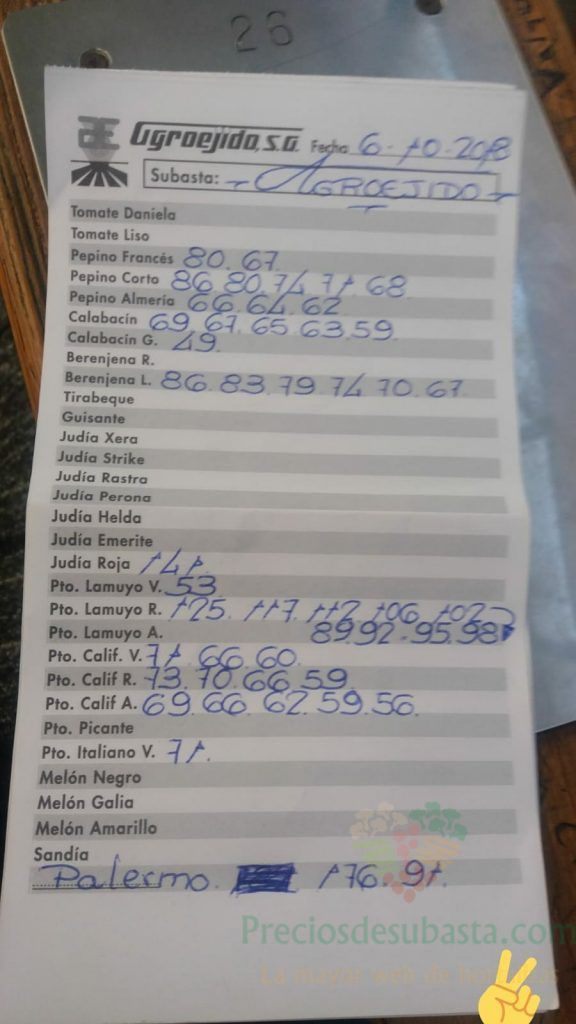 26
Agroejido, S.A. Fecha 6-10-2018
Subasta: - AGROEJIDO -
Tomate Daniela
Tomate Liso
Pepino Francés 80.67.
Pepino Corto 86.80.74.71.68.
Pepino Almería 66.64.62.
Calabacín 69.67.65.63.59.
Calabacín G. 49.
Berenjena R.
Berenjena L. 86.83.79.74.70.67.
Tirabeque
Guisante
Judía Xera
Judía Strike
Judía Rastra
Judía Perona
Judía Helda
Judía Emerite
Judía Roja 141.
Pto. Lamuyo V. 53
Pto. Lamuyo R. 125. 117. 112. 106. 102
Pto. Lamuyo A. 89.92-95.98
Pto. Calif. V. 71.66.60.
Pto. Calif R. 73.70.66.59.
Pto. Calif A. 69.66.62.59.56.
Pto. Picante
Pto. Italiano V. 71.
Melón Negro
Melón Galia
Melón Amarillo
Sandía
Palermo. 176.91.
Preciosdesubasta.com